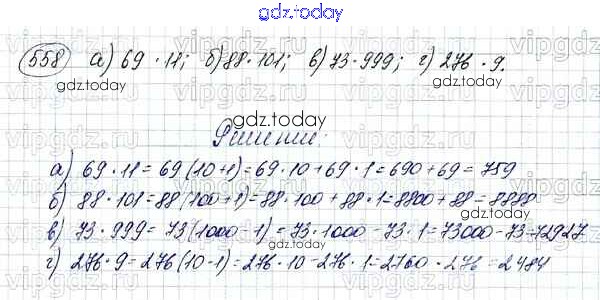 gdz.today
558 а) 69 · 11; б) 88 · 101; в) 73 · 999; г) 276 · 9.
gdz.today
Решение:
а) 69 · 11 = 69 (10 + 1) = 69 · 10 + 69 · 1 = 690 + 69 = 759
б) 88 · 101 = 88 (100 + 1) = 88 · 100 + 88 · 1 = 8800 + 88 = 8888
в) 73 · 999 = 73 (1000 - 1) = 73 · 1000 - 73 · 1 = 73000 - 73 = 72927
г) 276 · 9 = 276 (10 - 1) = 276 · 10 - 276 · 1 = 2760 - 276 = 2484
gdz.today